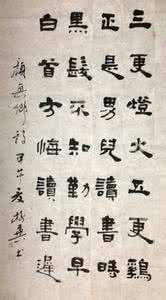 三更燈火五更鷄
正是男兒讀書時
黑髮不知勤學早
白首方悔讀書遲
顏真卿詩甲午夏